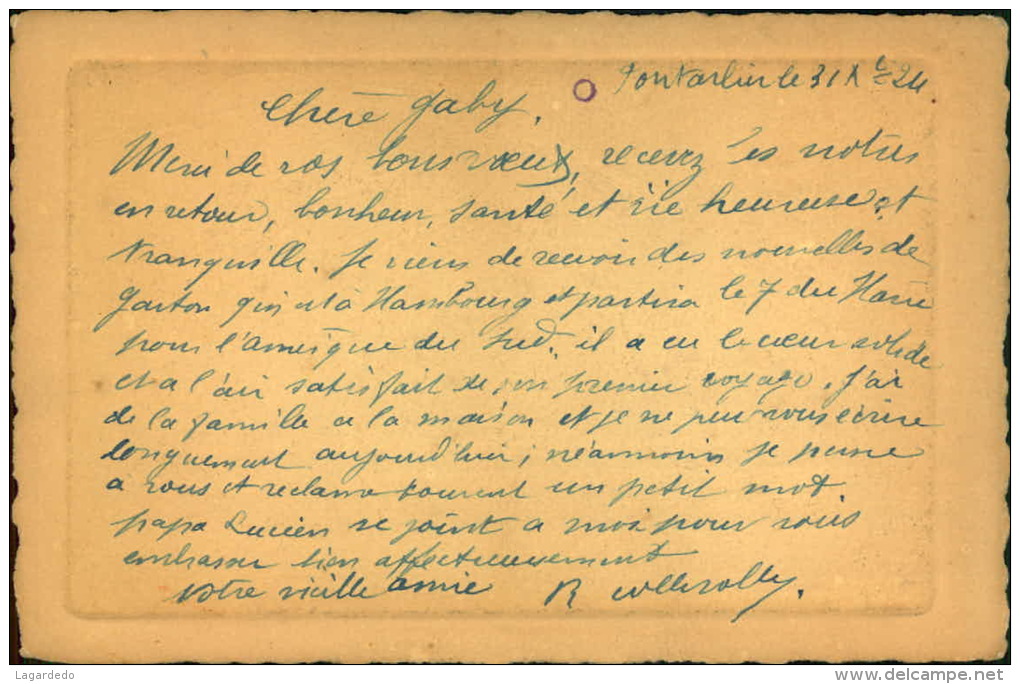 Pontarlier le 31 Xbre 24
Chère Gaby,
Merci de vos bons vœux, recevez les nôtres
en retour, bonheur, santé et vie heureuse et
tranquille. Je viens de recevoir des nouvelles de
Gaston qui est à Hambourg et partira le 7 du Havre
pour l'amérique du Sud. il a eu le cœur solide
et a l'air satisfait de son premier voyage. J'ai
de la famille a la maison et je ne peu vous écrire
longuement aujourd'hui ; néanmoins je pense
a vous et reclame souvent un petit mot.
papa Lucien se joint a moi pour vous
embrasser bien affectueusement
votre vieille amie R
Lagardedo
www.delcampe.net